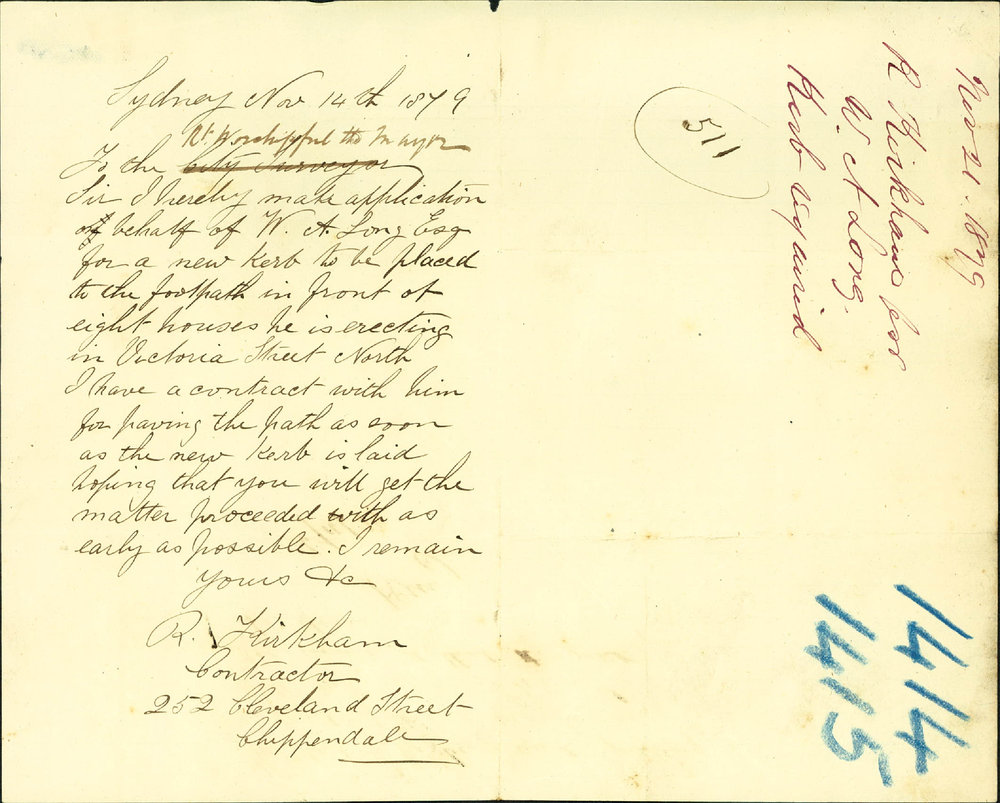 Sydney Nov 14th 1879
Rt. Worshipful the Mayor
To the City Surveyor
Sir I hereby make application
of behalf of W. A. Long Esq
for a new Kerb to be placed
to the footpath in front of
eight houses he is erecting
in Victoria Street North
I have a contract with him
for paving the path as soon
as the new Kerb is laid
hoping that you will get the
matter proceeded with as
early as possible. I remain
Yours &c
R. Kirkham
Contractor
252 Cleveland Street
Chippendale
511
Nov 21. 1879
R Kirkham for
W. A Long,
Kerb required
1414
1415